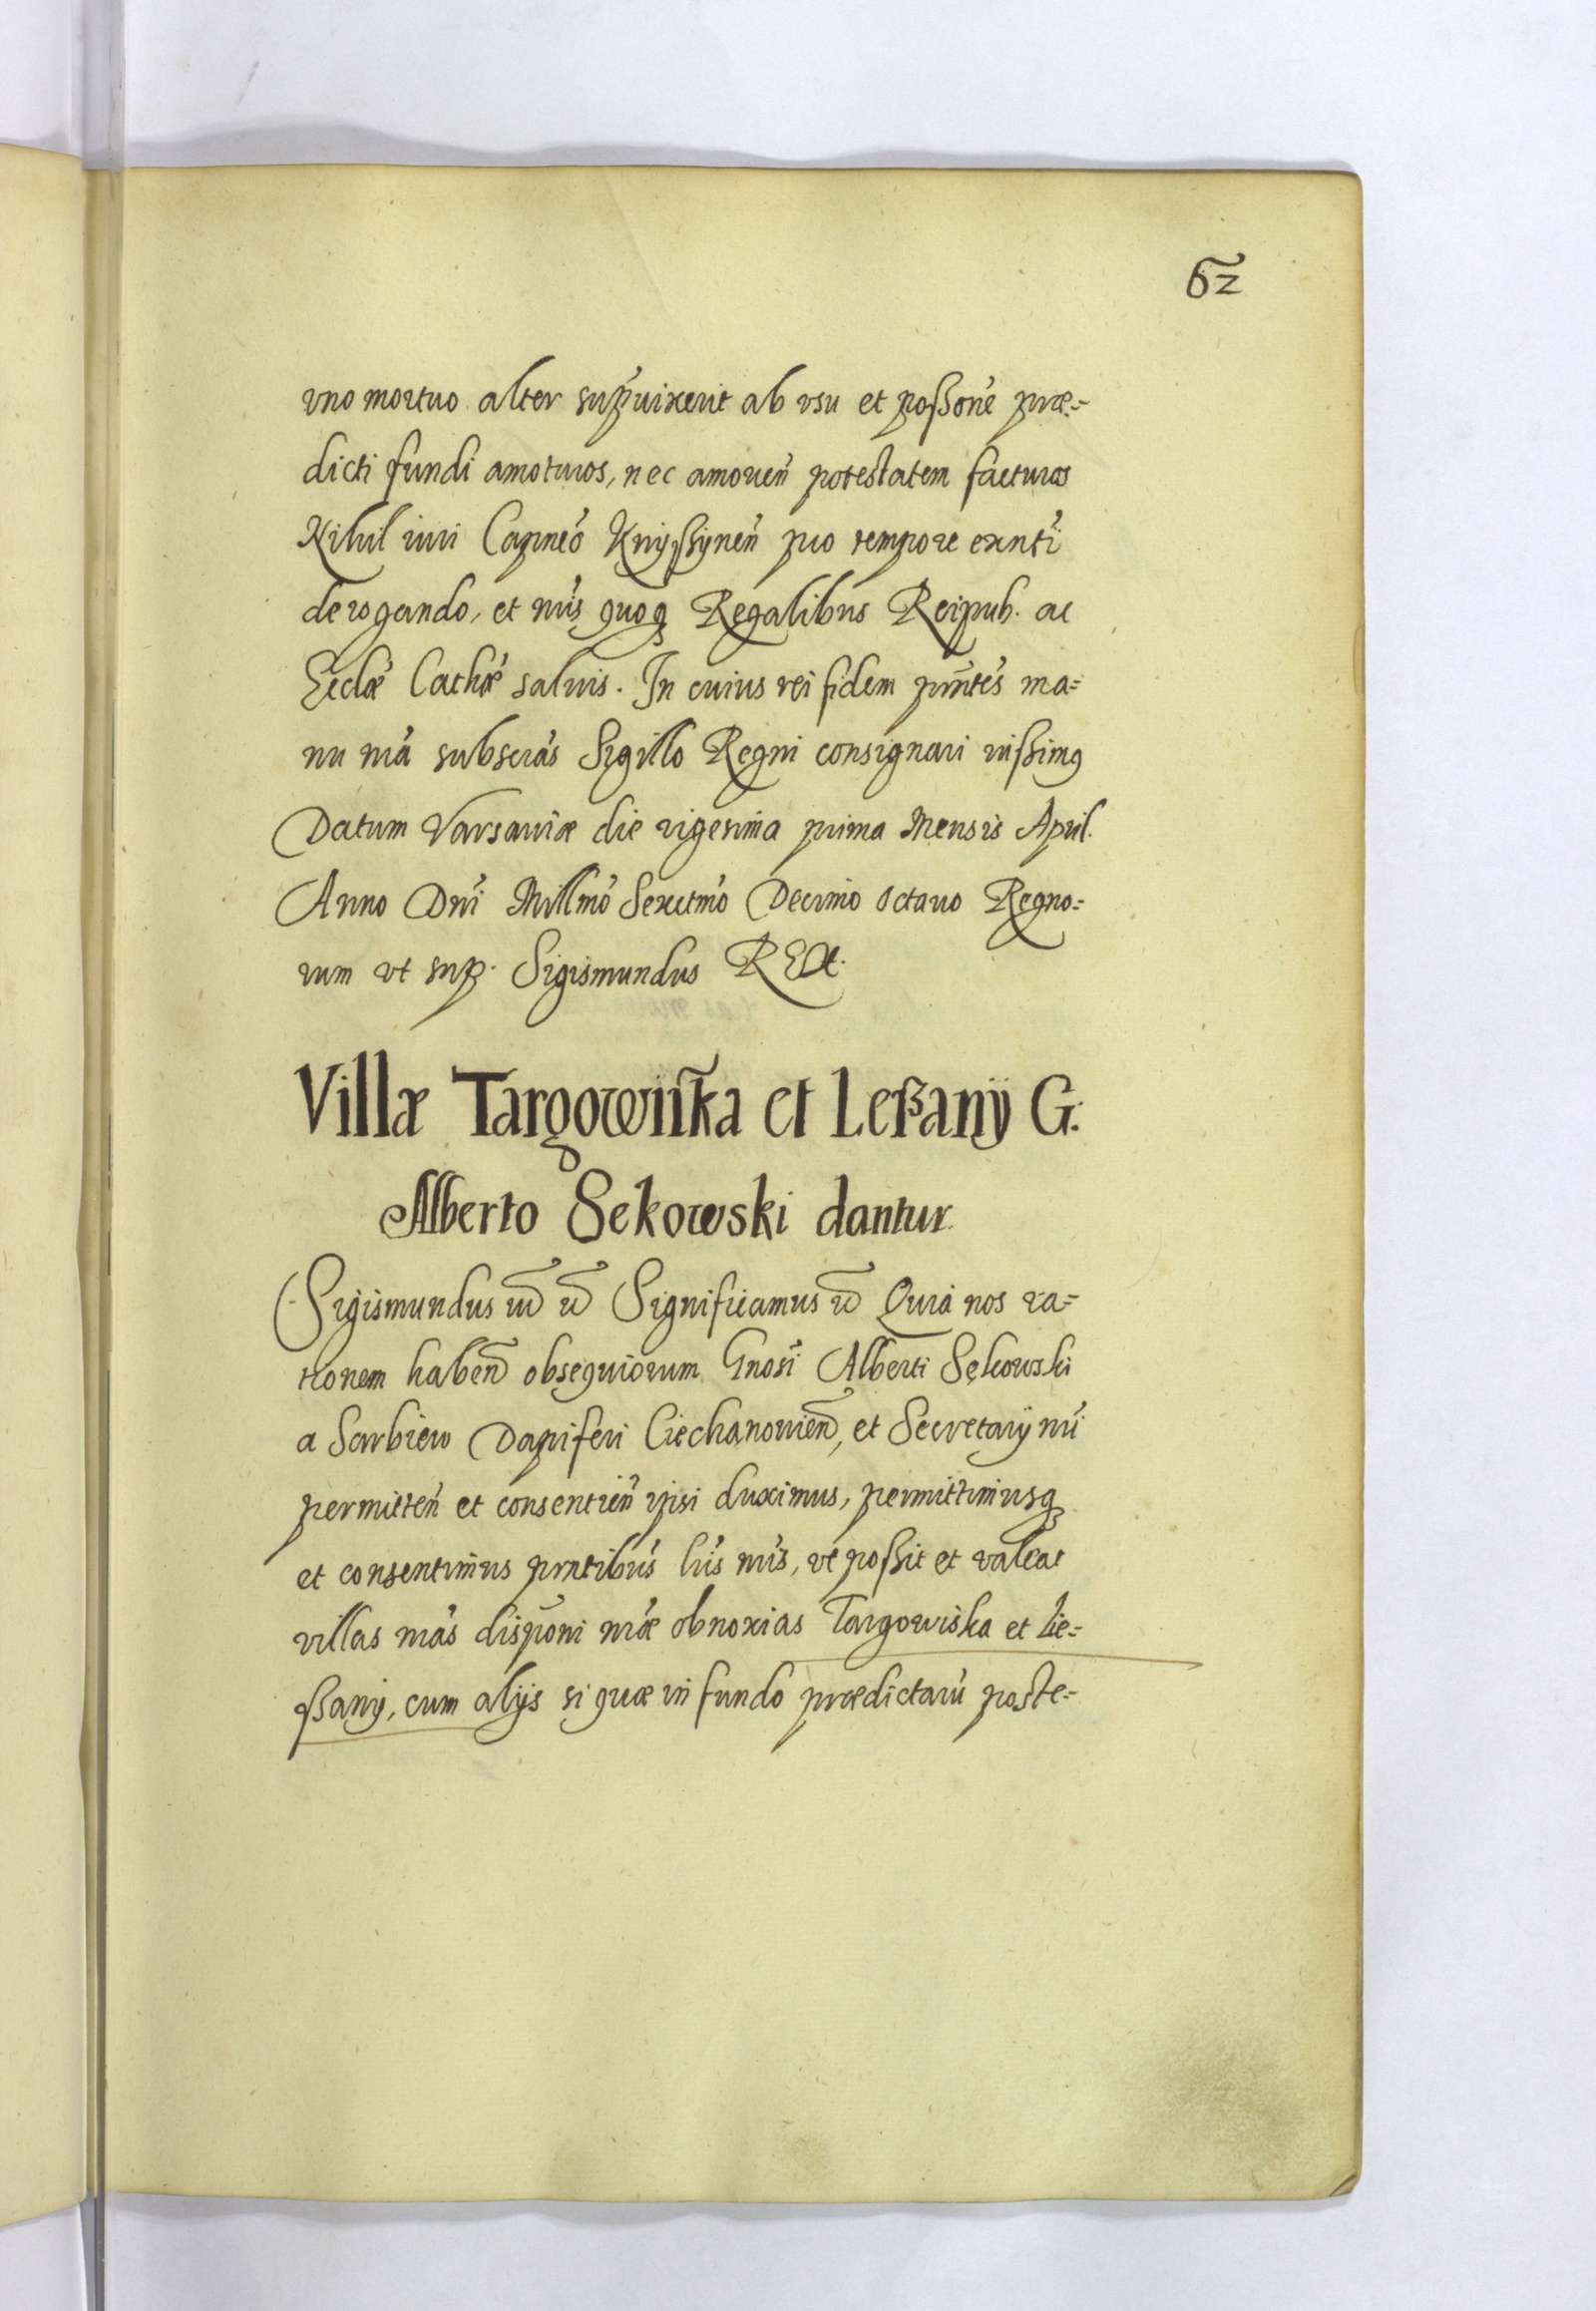 62
vno mortuo alter sup̱uixerit ab vsu et poßone præ=
dicti fundi amoturos, nec amouen̄ potestatem facturos
Nihil iuri Capneo Knyßynen̄ pro tempore exnti
derogando, et nris quoq Regalibus Reipub. ac
Ecclæ Cathæ saluis. In cuius rei fidem prntes ma=
nu nra subscras Sigillo Regni consignari iußimq
Datum Varsauiæ die vigesima prima Mensis April.
Anno Dni Millmo Sexctmo Decimo Octauo Regno=
rum vt sup. Sigismundus REX.
Villæ Targowiſka et Leßany G.
Alberto Sekowski dantur
Sigismundus etc̄ etc̄ Significamus etc̄ Quia nos ra=
tionem haben̄ obsequiorum Gnosi Alberti Sękowski
a Sarbiew Dapiferi Ciechanouien̄, et Secretarÿ nri
permitten̄ et consentien̄ ipsi duximus, permittimusq
et consentimus prntibus lris nris, vt poßit et valeat
villas nras dispōni nræ obnoxias Targowiska et Lie=
ßany, cum alÿs si quæ in fundo prædictarū poste=